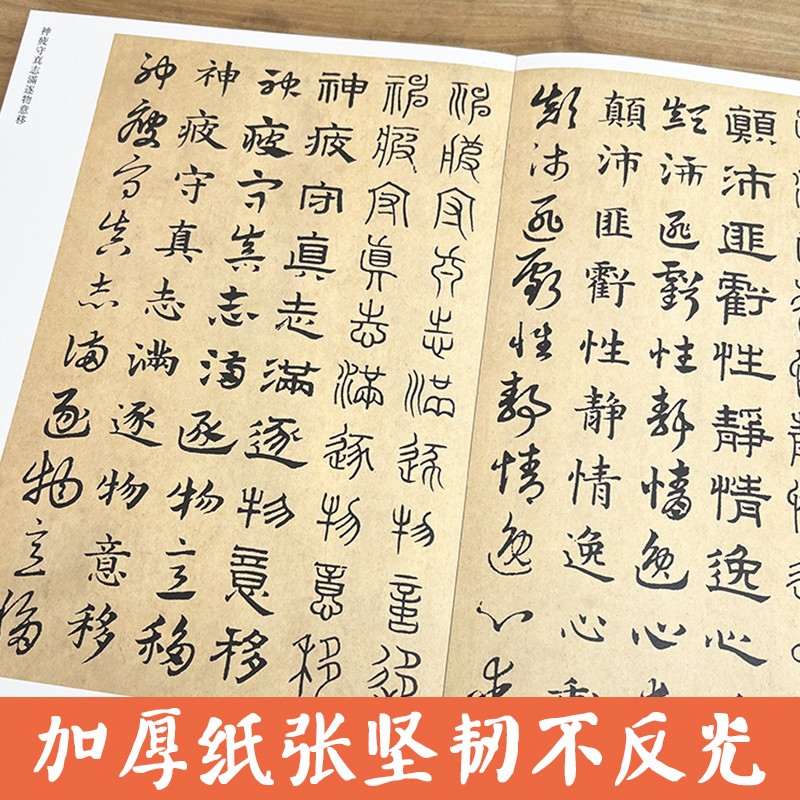 顛沛匪虧性靜情逸心
顛沛匪虧性靜情逸心
顛沛匪虧性静情逸心
顛沛匪虧性靜情逸心
神疲守真志滿逐物意移
神疲守真志滿逐物意移
神疲守真志滿逐物意移
神疲守真志滿逐物意移
神疲守真志滿逐物意移
神疲守真志滿逐物意移
神疲守真志滿逐物意移
加厚纸张坚韧不反光